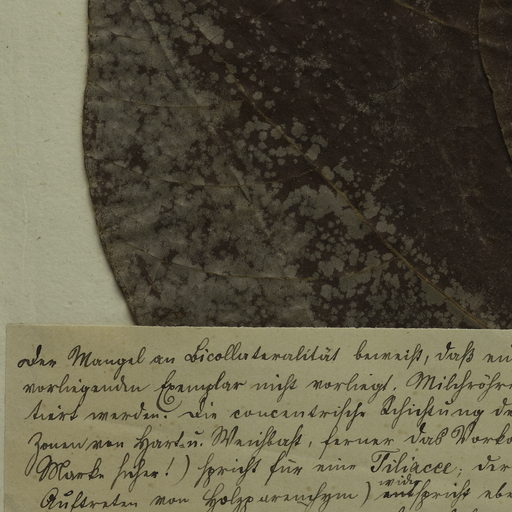 Der Mangel an Bicollateralität beweist, daß ein
vorliegenden Exemplar nicht vorliegt. Milchröhre
tiert werden. Die concentrische Schichtung de
Zonen von Hart u. Weichbast, ferner das Vorko
Marke sicher!) spricht für eine Tiliacee; der
wider
Auftreten von Holzparenchym) entspricht ebe